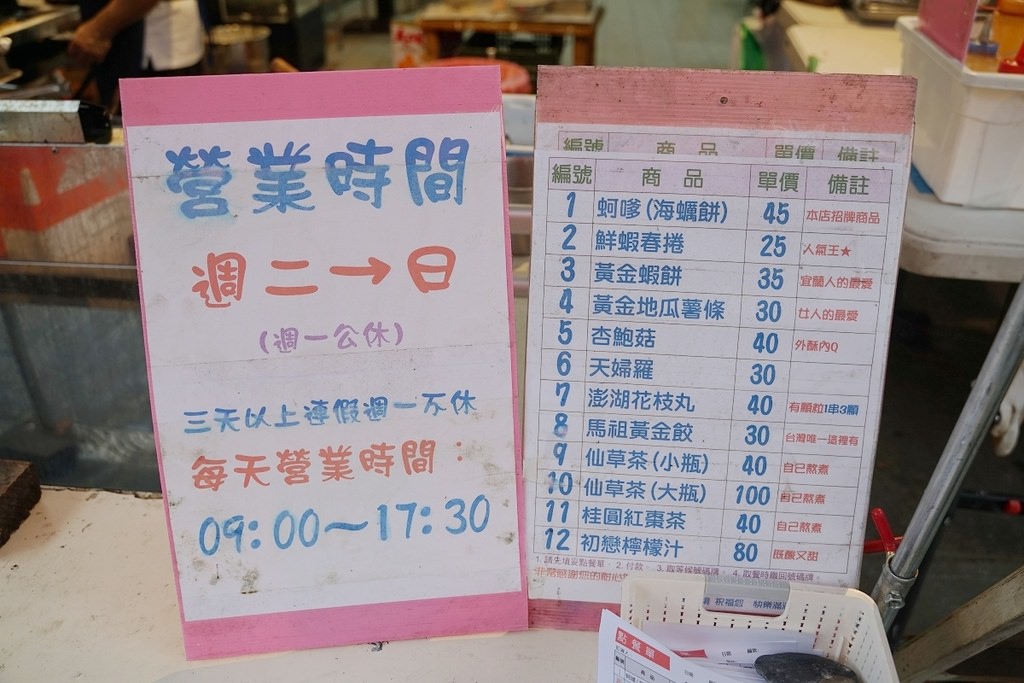 營業時間
週二→日
(週一公休)
三天以上連假週一不休
每天營業時間：
09:00～17:30
編號 商品 單價 備註
編號 商品 單價 備註
1 蚵嗲(海蠣餅) 45 本店招牌商品
2 鮮蝦春捲 25 人氣王★
3 黃金蝦餅 35 宜蘭人的最愛
4 黃金地瓜薯條 30 女人的最愛
5 杏鮑菇 40 外酥內Q
6 天婦羅 30
7 澎湖花枝丸 40 有顆粒1串3顆
8 馬祖黃金餃 30 台灣唯一這裡有
9 仙草茶(小瓶) 40 自己熬煮
10 仙草茶(大瓶) 100 自己熬煮
11 桂圓紅棗茶 40 自己熬煮
12 初戀檸檬汁 80 既酸又甜
1. 請先填妥點餐單。 2. 付款。 3. 取等候號碼牌。 4. 取餐時繳回號碼牌。
非常感謝您的耐心
祝福您 快樂滿
點餐單